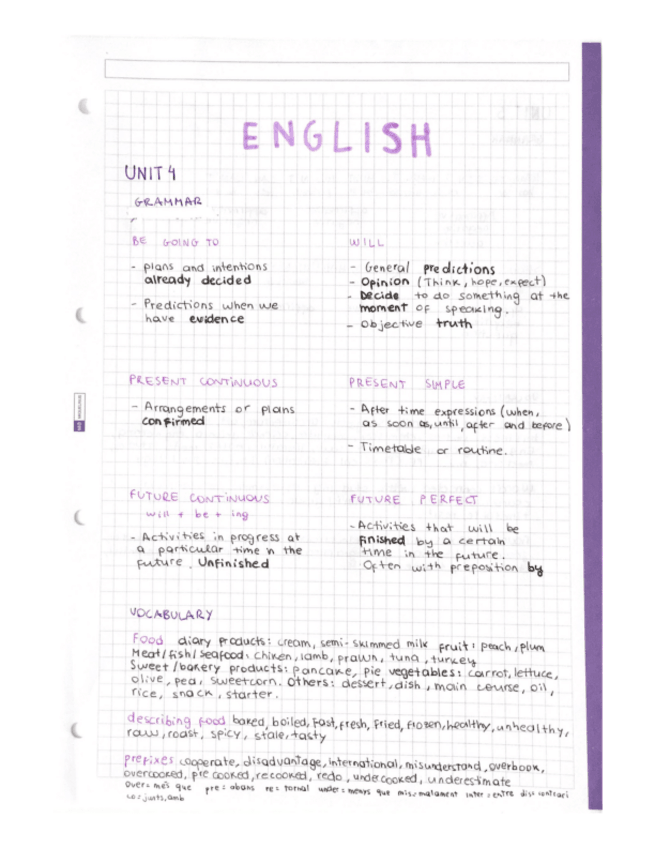 ENGLISH
UNIT 4
GRAMMAR
BE GOING TO
- plans and intentions
already decided
- Predictions when we
have evidence
WILL
- General predictions
- Opinion (Think, hope, expect)
- Decide to do something at the
moment of speaking.
- Objective truth
PRESENT CONTINUOUS
- Arrangements or plans
confirmed
PRESENT SIMPLE
- After time expressions (when,
as soon as, until, after and before)
- Timetable or routine.
FUTURE CONTINUOUS
will + be + ing
- Activities in progress at
a particular time in the
future. Unfinished
FUTURE PERFECT
- Activities that will be
finished by a certain
time in the future.
Often with preposition by
VOCABULARY
Food diary products: cream, semi-skimmed milk fruit: peach, plum
Meat/fish/seafood: chiken, lamb, prawn, tuna, turkey
Sweet/bakery products: pancake, pie vegetables: carrot, lettuce,
olive, pea, sweetcorn. Others: dessert, dish, main course, oil,
rice, snack, starter.
describing food baked, boiled, fast, fresh, fried, frozen, healthy, unhealthy,
raw, roast, spicy, stale, tasty
prefixes cooperate, disadvantage, international, misunderstand, overbook,
overcooked, pre cooked, recooked, redo, undercooked, underestimate
over = més que pre = abans re = tornal under = menys que mis = malament inter = entre dis = contrari
co = junts, amb